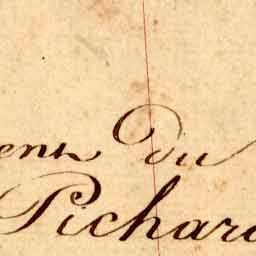 ens du
Pichar